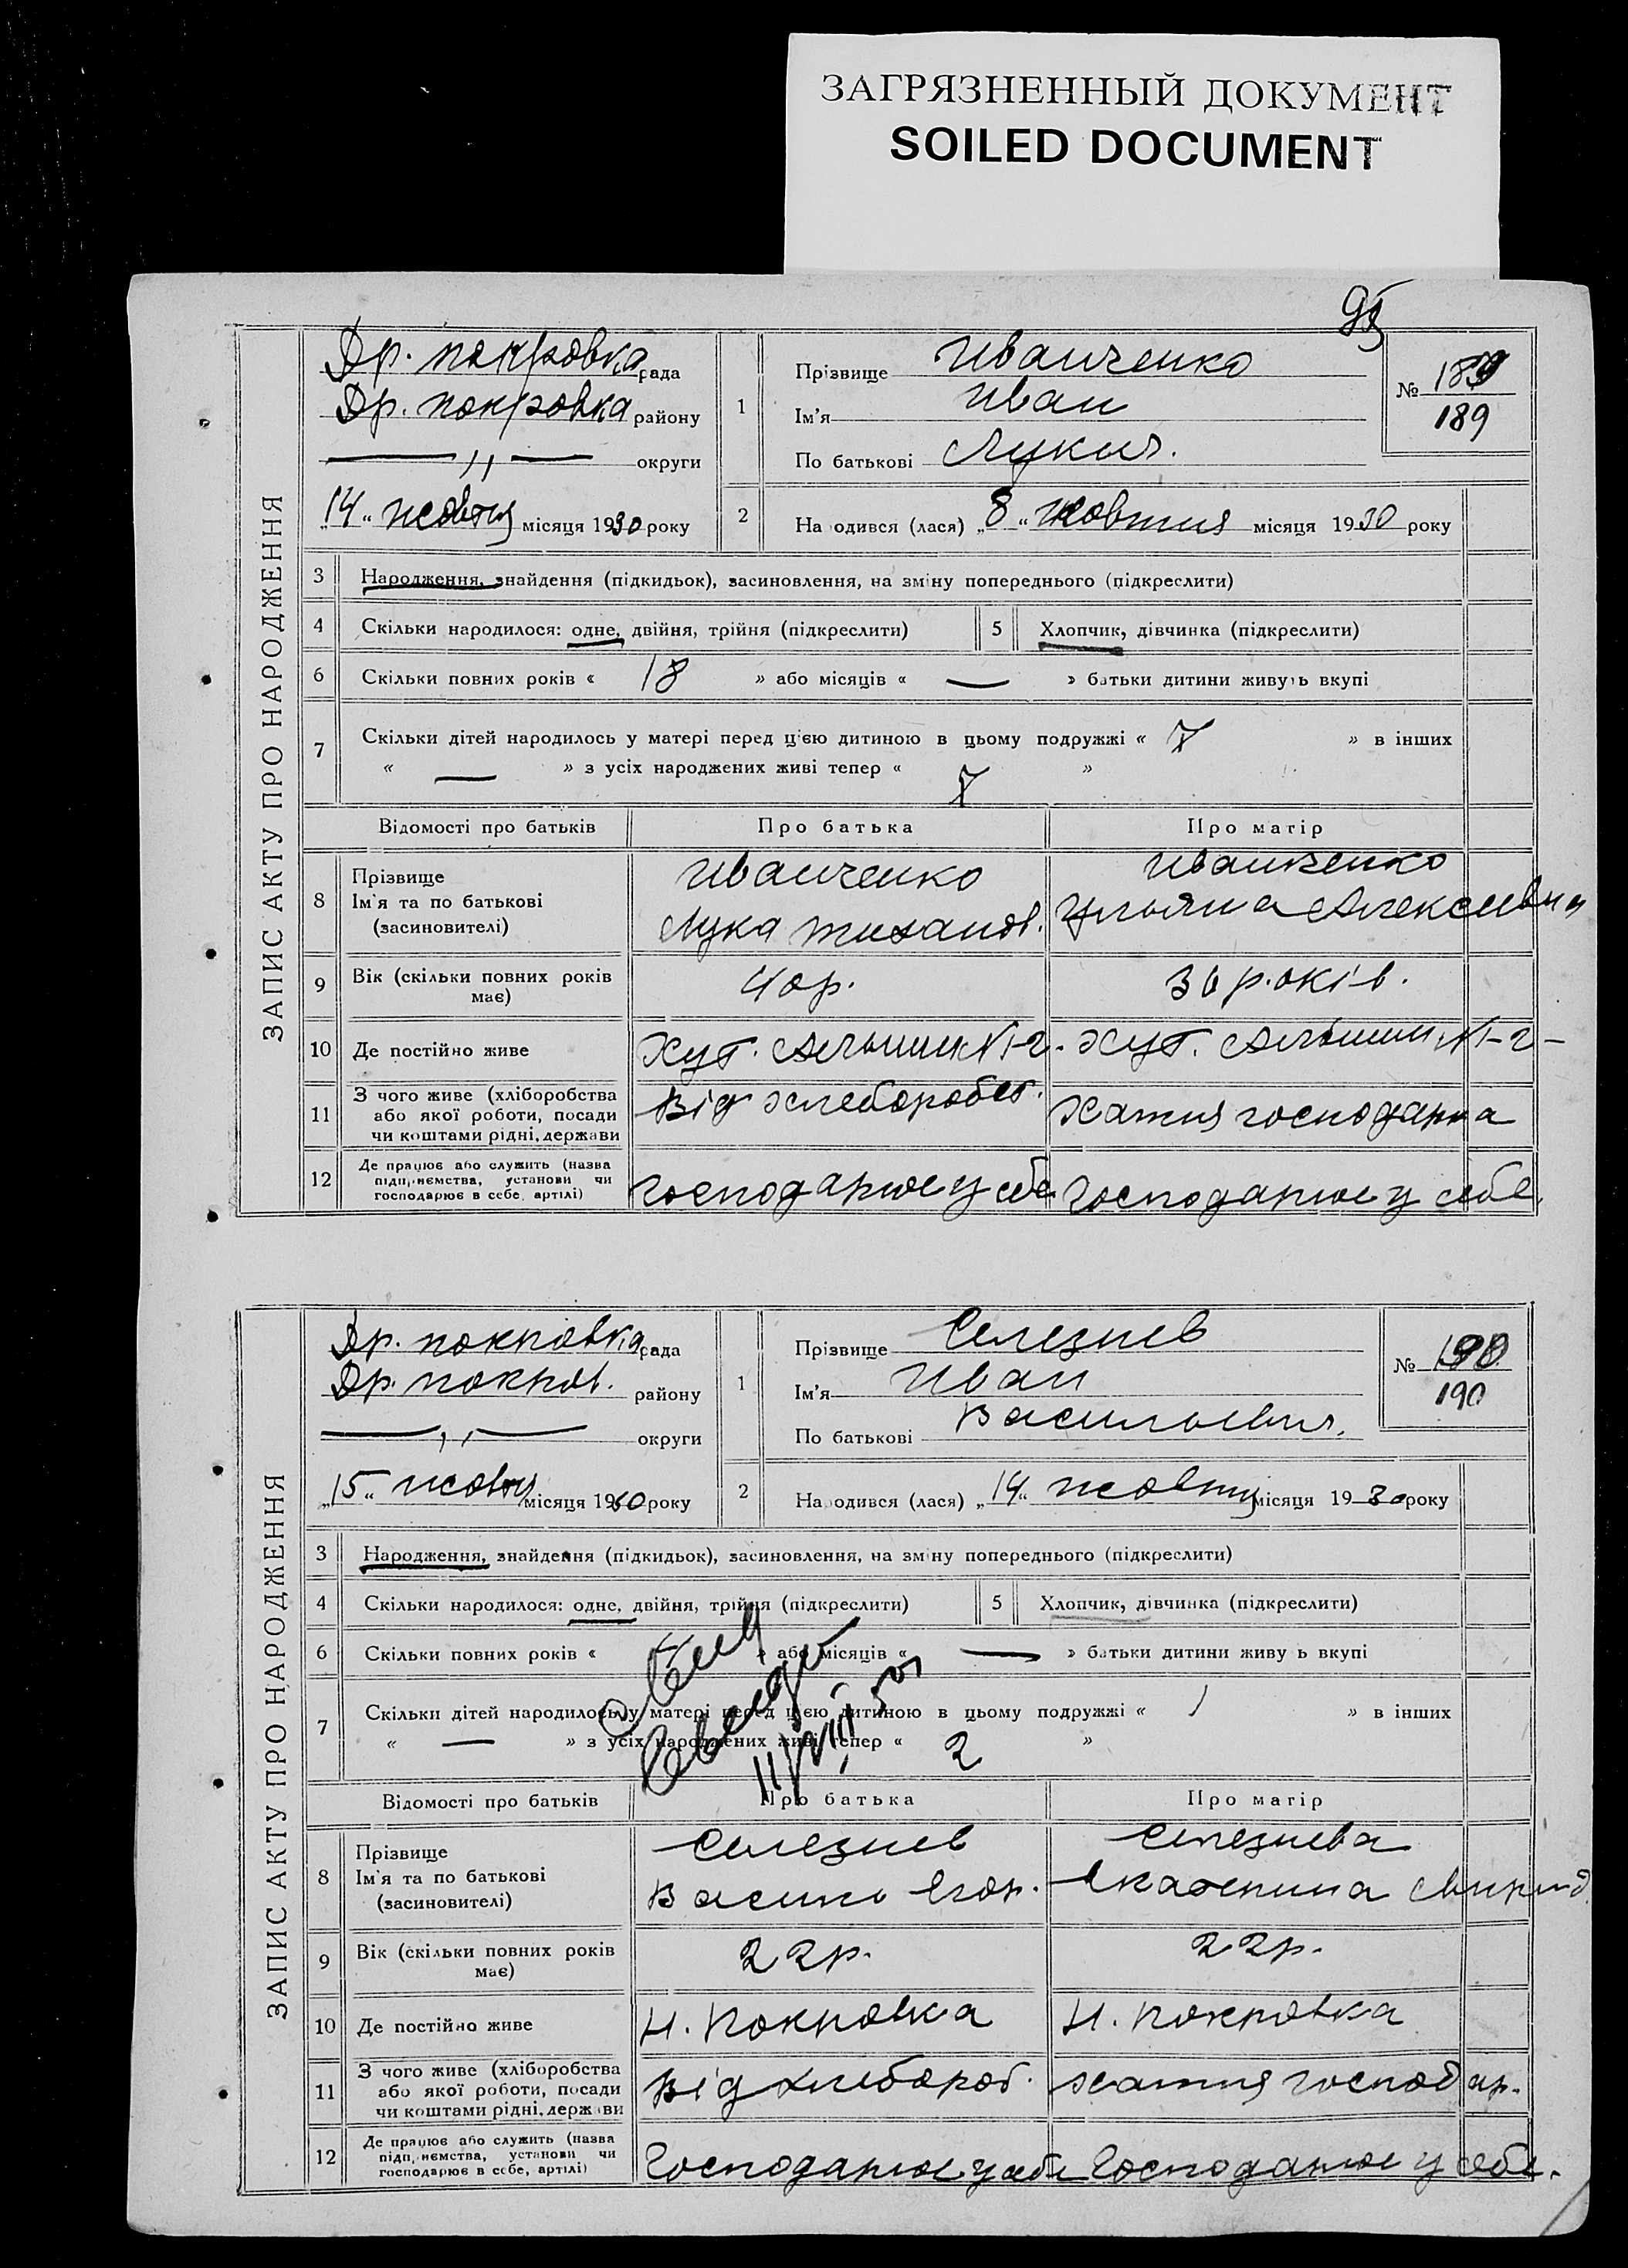 ЗАГРЯЗНЕННЫЙ ДОКУМЕНТ
SOILED DOCUMENT
95
ЗАПИС АКТУ ПРО НАРОДЖЕННЯ
Др. покровка рада
Др. покровка району
— „ — округи
„14“ жовтня місяця 1930 року
1
Прізвище Иванченко
Ім'я Иван
По батькові Лукич.
№ 189
189
2
На одився (лася) „8“ жовтня місяця 1930 року
3 Народження, знайдення (підкидьок), засиновлення, на зміну попереднього (підкреслити)
4 Скільки народилося: одне, двійня, трійня (підкреслити) 5 Хлопчик, дівчинка (підкреслити)
6 Скільки повних років « 18 » або місяців « — » батьки дитини живуть вкупі
7 Скільки дітей народилось у матері перед цією дитиною в цьому подружжі « 7 » в інших
« — » з усіх народжених живі тепер « 7 »
Відомості про батьків Про батька Про матір
8 Прізвище Ім'я та по батькові (засиновителі)
Иванченко Иванченко
Лука тихонов. Ульяна Алексиевна
9 Вік (скільки повних років має) 40р. 36 р.оків.
10 Де постійно живе Хут. №1-2. Хут. №1-2-
11 З чого живе (хліборобства або якої роботи, посади чи коштами рідні, держави Від хлебороб. хатня господарка
12 Де працює або служить (назва підприємства, установи чи господарює в себе, артілі) господарює у себе Господарює у себе.
ЗАПИС АКТУ ПРО НАРОДЖЕННЯ
Др. покровка рада
Др. покров. району
— „ — округи
„15“ жовтня місяця 1930 року
1
Прізвище Селезнев
Ім'я Иван
По батькові Васильевич.
№ 190
190
2
Народився (лася) „14“ жовтня місяця 1930 року
3 Народження, знайдення (підкидьок), засиновлення, на зміну попереднього (підкреслити)
4 Скільки народилося: одне, двійня, трійня (підкреслити) 5 Хлопчик, дівчинка (підкреслити)
6 Скільки повних років « » або місяців « — » батьки дитини живу ь вкупі
7 Скільки дітей народилось у матері перед цією дитиною в цьому подружжі « 1 » в інших
« — » з усіх народжених живі тепер « 2 »
Відомості про батьків Про батька Про матір
8 Прізвище Ім'я та по батькові (засиновителі)
Селезнев Селезнева
Василь Егор. Екатерина Свирид.
9 Вік (скільки повних років має) 22р. 22р.
10 Де постійно живе Н. Покровка Н. Покровка
11 З чого живе (хліборобства або якої роботи, посади чи коштами рідні, держави Від хлебороб. хатня господар.
12 Де працює або служить (назва підприємства, установи чи господарює в себе, артілі) Господарює у себе Господарює у себе.